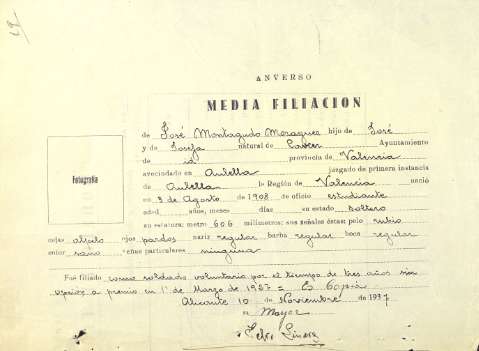 ANVERSO
MEDIA FILIACION
de José Montagudo Moragues hijo de José
y de Josefa natural de Ayuntamiento
de id provincia de Valencia
avecindado en juzgado de primera instancia
de la Región de Valencia nació
en 3 de Agosto de 1908 de oficio estudiante
edad, años, meses días en estado soltero
su estatura: metro 606 milímetros; sus señales éstas: pelo rubio
cejas ojos pardos nariz regular barba regular boca regular
color sano señas particulares ninguna
Fotografía
Fué filiado como soldado voluntario por el tiempo de tres años sin
opción a premio en 1º de Marzo de 1937 = Es Copia
Alicante 10 de Noviembre de 1937
El Mayor